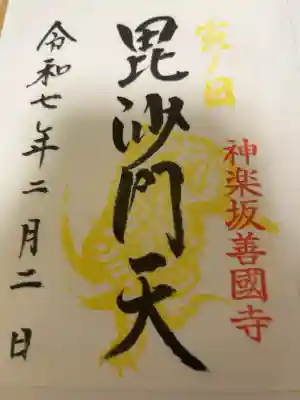 寅ノ日
神楽坂善國寺
毘沙門天
令和七年二月二日